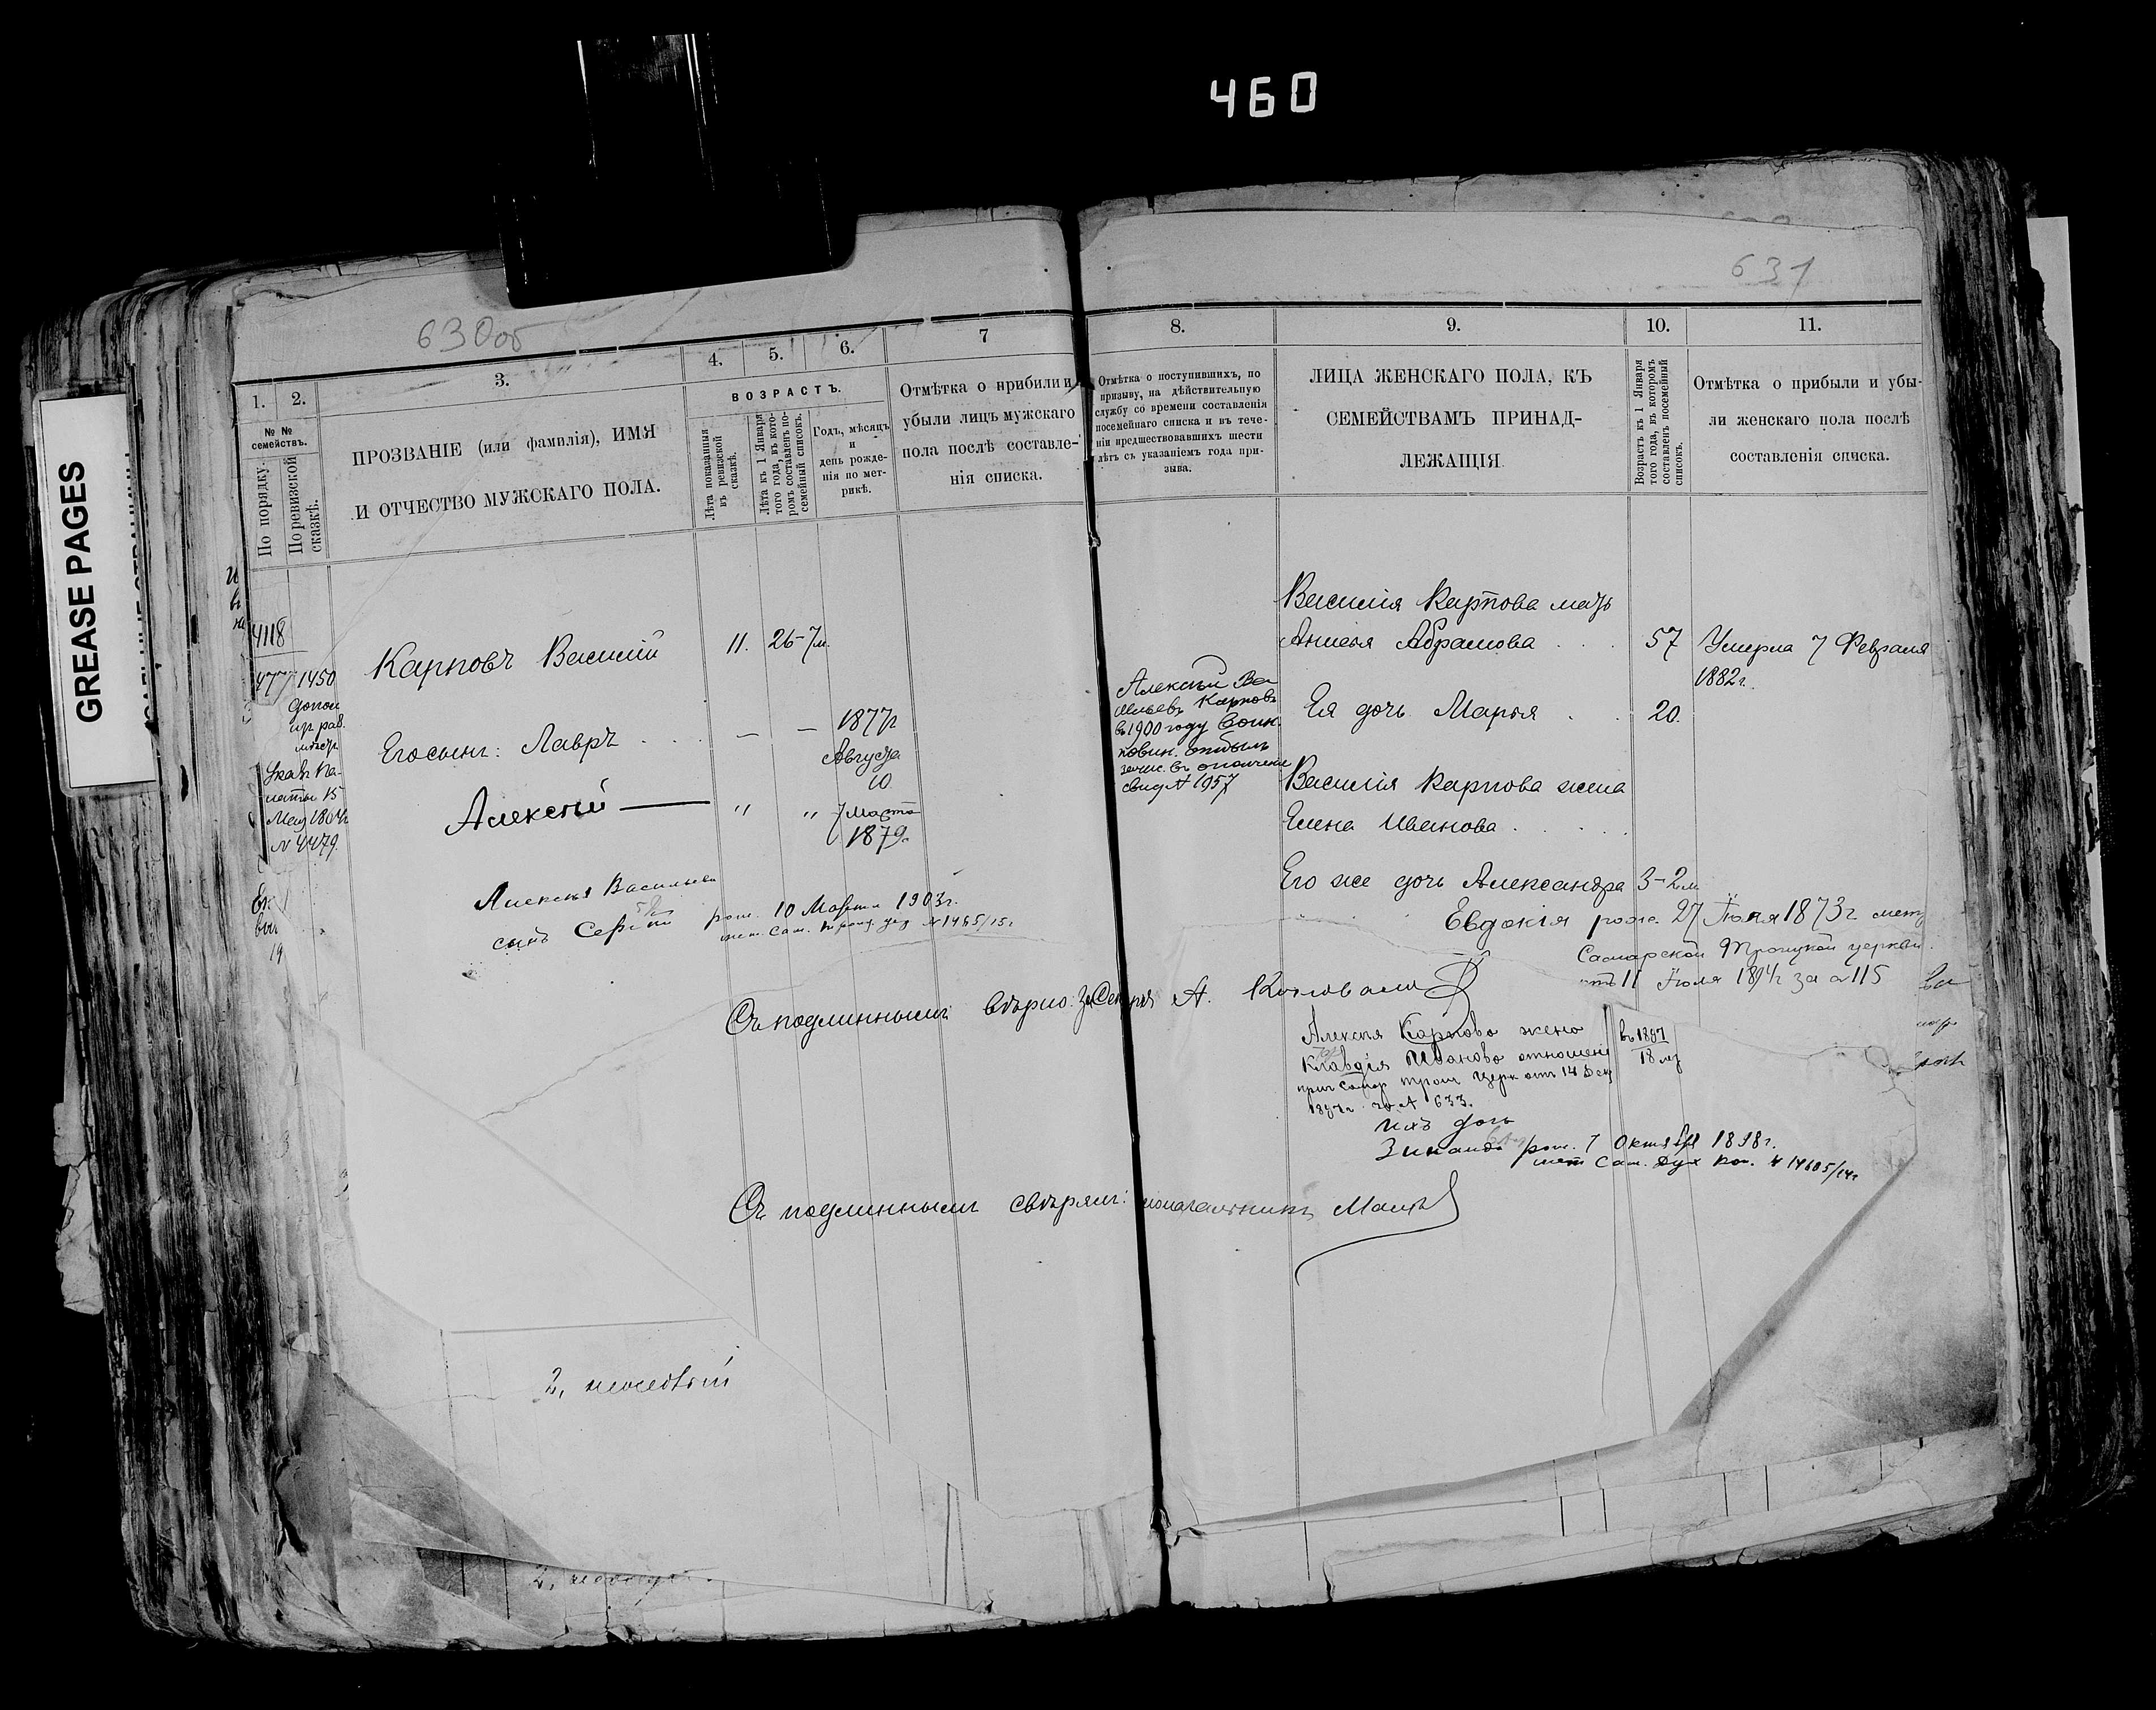 460
GREASE PAGES
630об
1. 2. 3. 4. 5. 6. 7
№ № семействъ.
По порядку.
По ревизской сказкѣ.
ПРОЗВАНІЕ (или фамилія), ИМЯ
И ОТЧЕСТВО МУЖСКАГО ПОЛА.
ВОЗРАСТЪ.
Лѣта показанныя въ ревизской сказкѣ.
Лѣта къ 1 Января того года, въ которомъ составленъ посемейный списокъ.
Годъ, мѣсяцъ
и
день рожде-
нія по мет-
рикѣ.
Отмѣтка о прибыли и
убыли лицъ мужскаго
пола послѣ составле-
нія списка.
4118
477 1450
Карповъ Василій 11. 26-7м.
Его сынъ: Лавръ — — 1877г
Августа
10
Алексѣй — " " 7 Марта
1879г.
Указъ Па-
латы 15
Мая 1864г
№ 4479.
Алексѣя Васильева
сынъ Сергѣй род. 10 Марта 1903г.
631
8. 9. 10. 11.
Отмѣтка о поступившихъ, по
призыву, на дѣйствительную
службу со времени составленія
посемейнаго списка и въ тече-
ніи предшествовавшихъ шести
лѣтъ съ указаніемъ года при-
зыва.
ЛИЦА ЖЕНСКАГО ПОЛА, КЪ
СЕМЕЙСТВАМЪ ПРИНАД-
ЛЕЖАЩІЯ.
Возрастъ къ 1 Января того года, въ которомъ составленъ посемейный списокъ.
Отмѣтка о прибыли и убы-
ли женскаго пола послѣ
составленія списка.
Василія Карпова мать
Анисья Абрамова 57 Умерла 7 Февраля
1882г.
Алексѣй Ва
сильевъ Карповъ
въ 1900 году воин.
повин. отбылъ
зачис. въ ополчение
свид № 1957
Ея дочь Марья 20.
Василія Карпова жена
Елена Иванова
Его же дочь Александра 3-2м
Евдокія рожд. 27 Іюля 1873г метр
Самарской Троицкой церкви
отъ 11 Іюля 1894г за № 115
Съ подлиннымъ вѣрно: А.
Алексѣя Карпова жена въ 1897
Клавдія Иванова отношені 18 лѣт
прич Самар Троиц Церк отъ 14 Дек
1897г. за № 633.
ихъ дочь
Зинаида род. 7 Октября 1898г.
мет Сам. Дух Кон. № 14605/14г
Съ подлиннымъ свѣрялъ:
2,